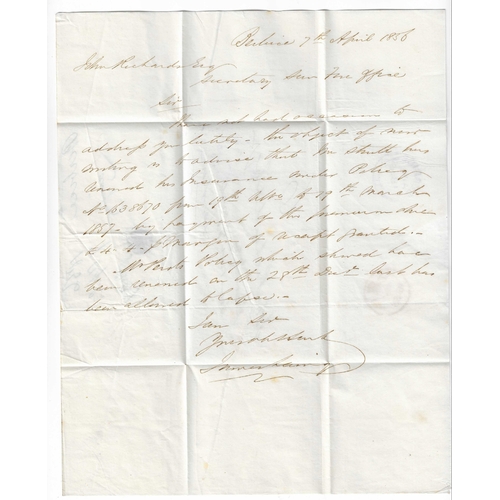 Belize 7th April 1856
John Richards Esq
Secretary Sun Fire Office
Sir
Have not had occasion to
address you lately. The object of now
writing is to advise that Mr has
renewed his Insurance under Policy
No 638670 from 19th Ulto to 19th March
1857 - by payment of the premium
£4 " - p Margin of receipt granted. -
Policy which should have
been renewed on the 28th last has
been allowed to lapse. -
I am Sir
Your obt Sert
James